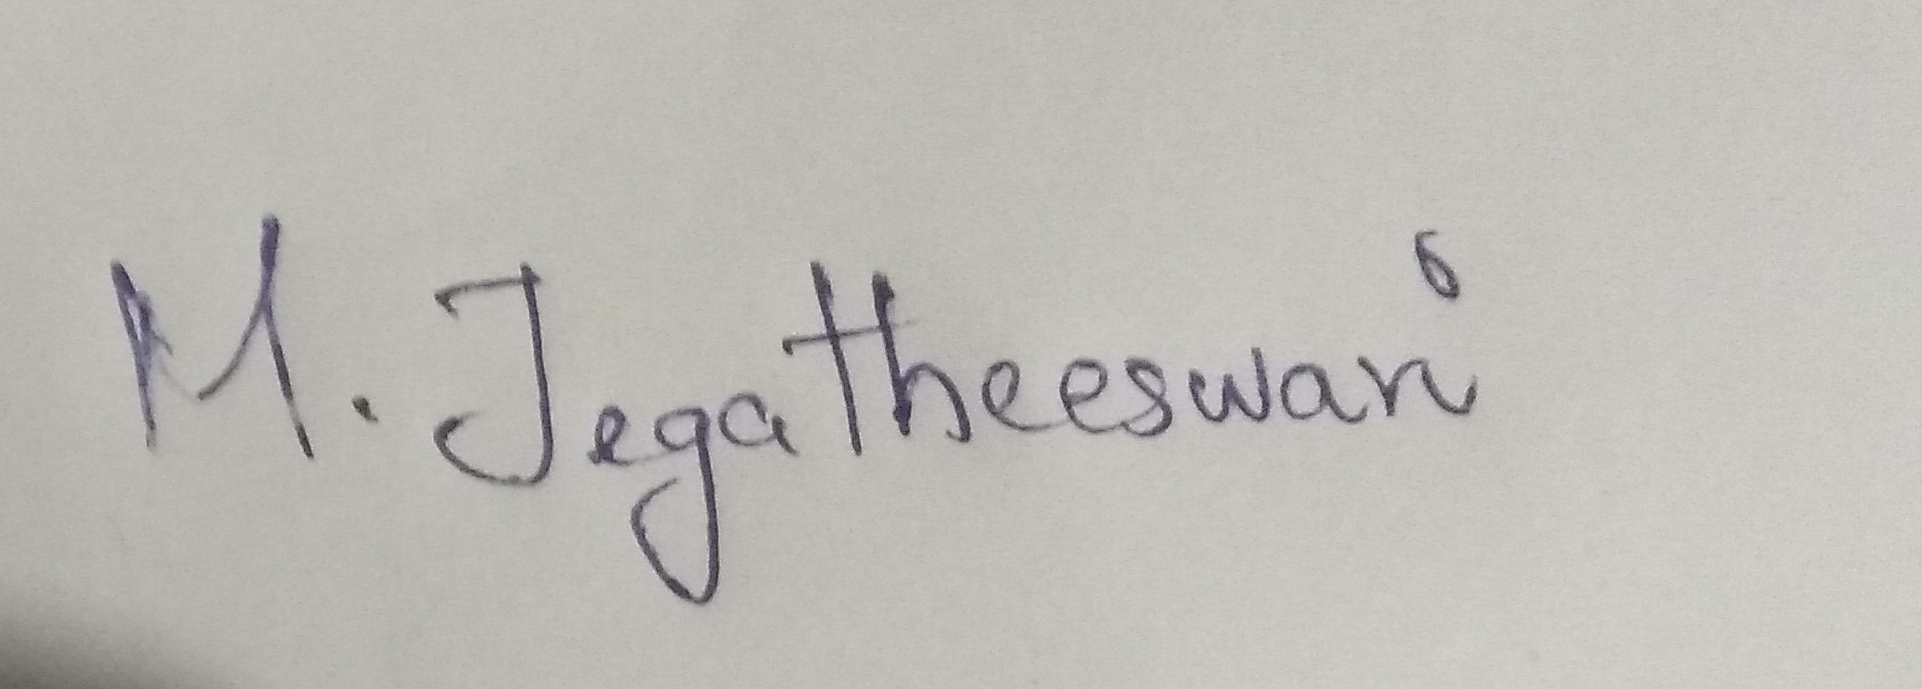 M. Jegatheeswari